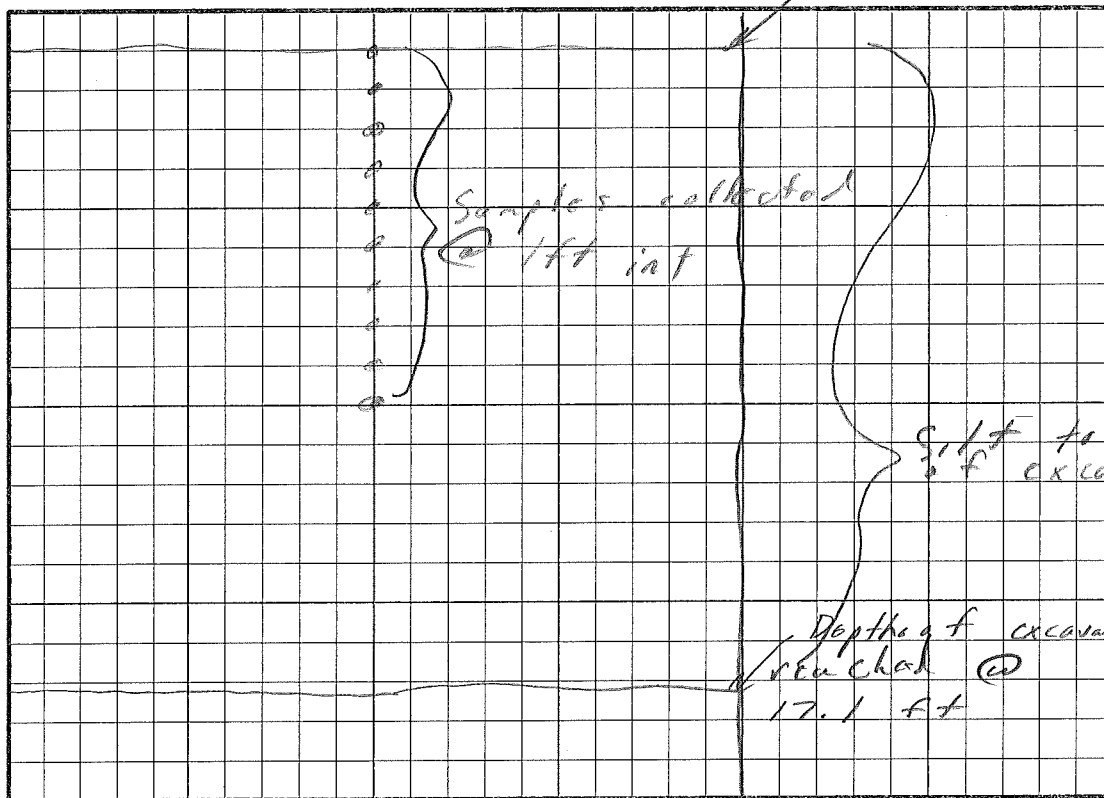 Samples collected
@ 1ft int
Silt to
of exca
Depth of excava
reached @
17.1 ft